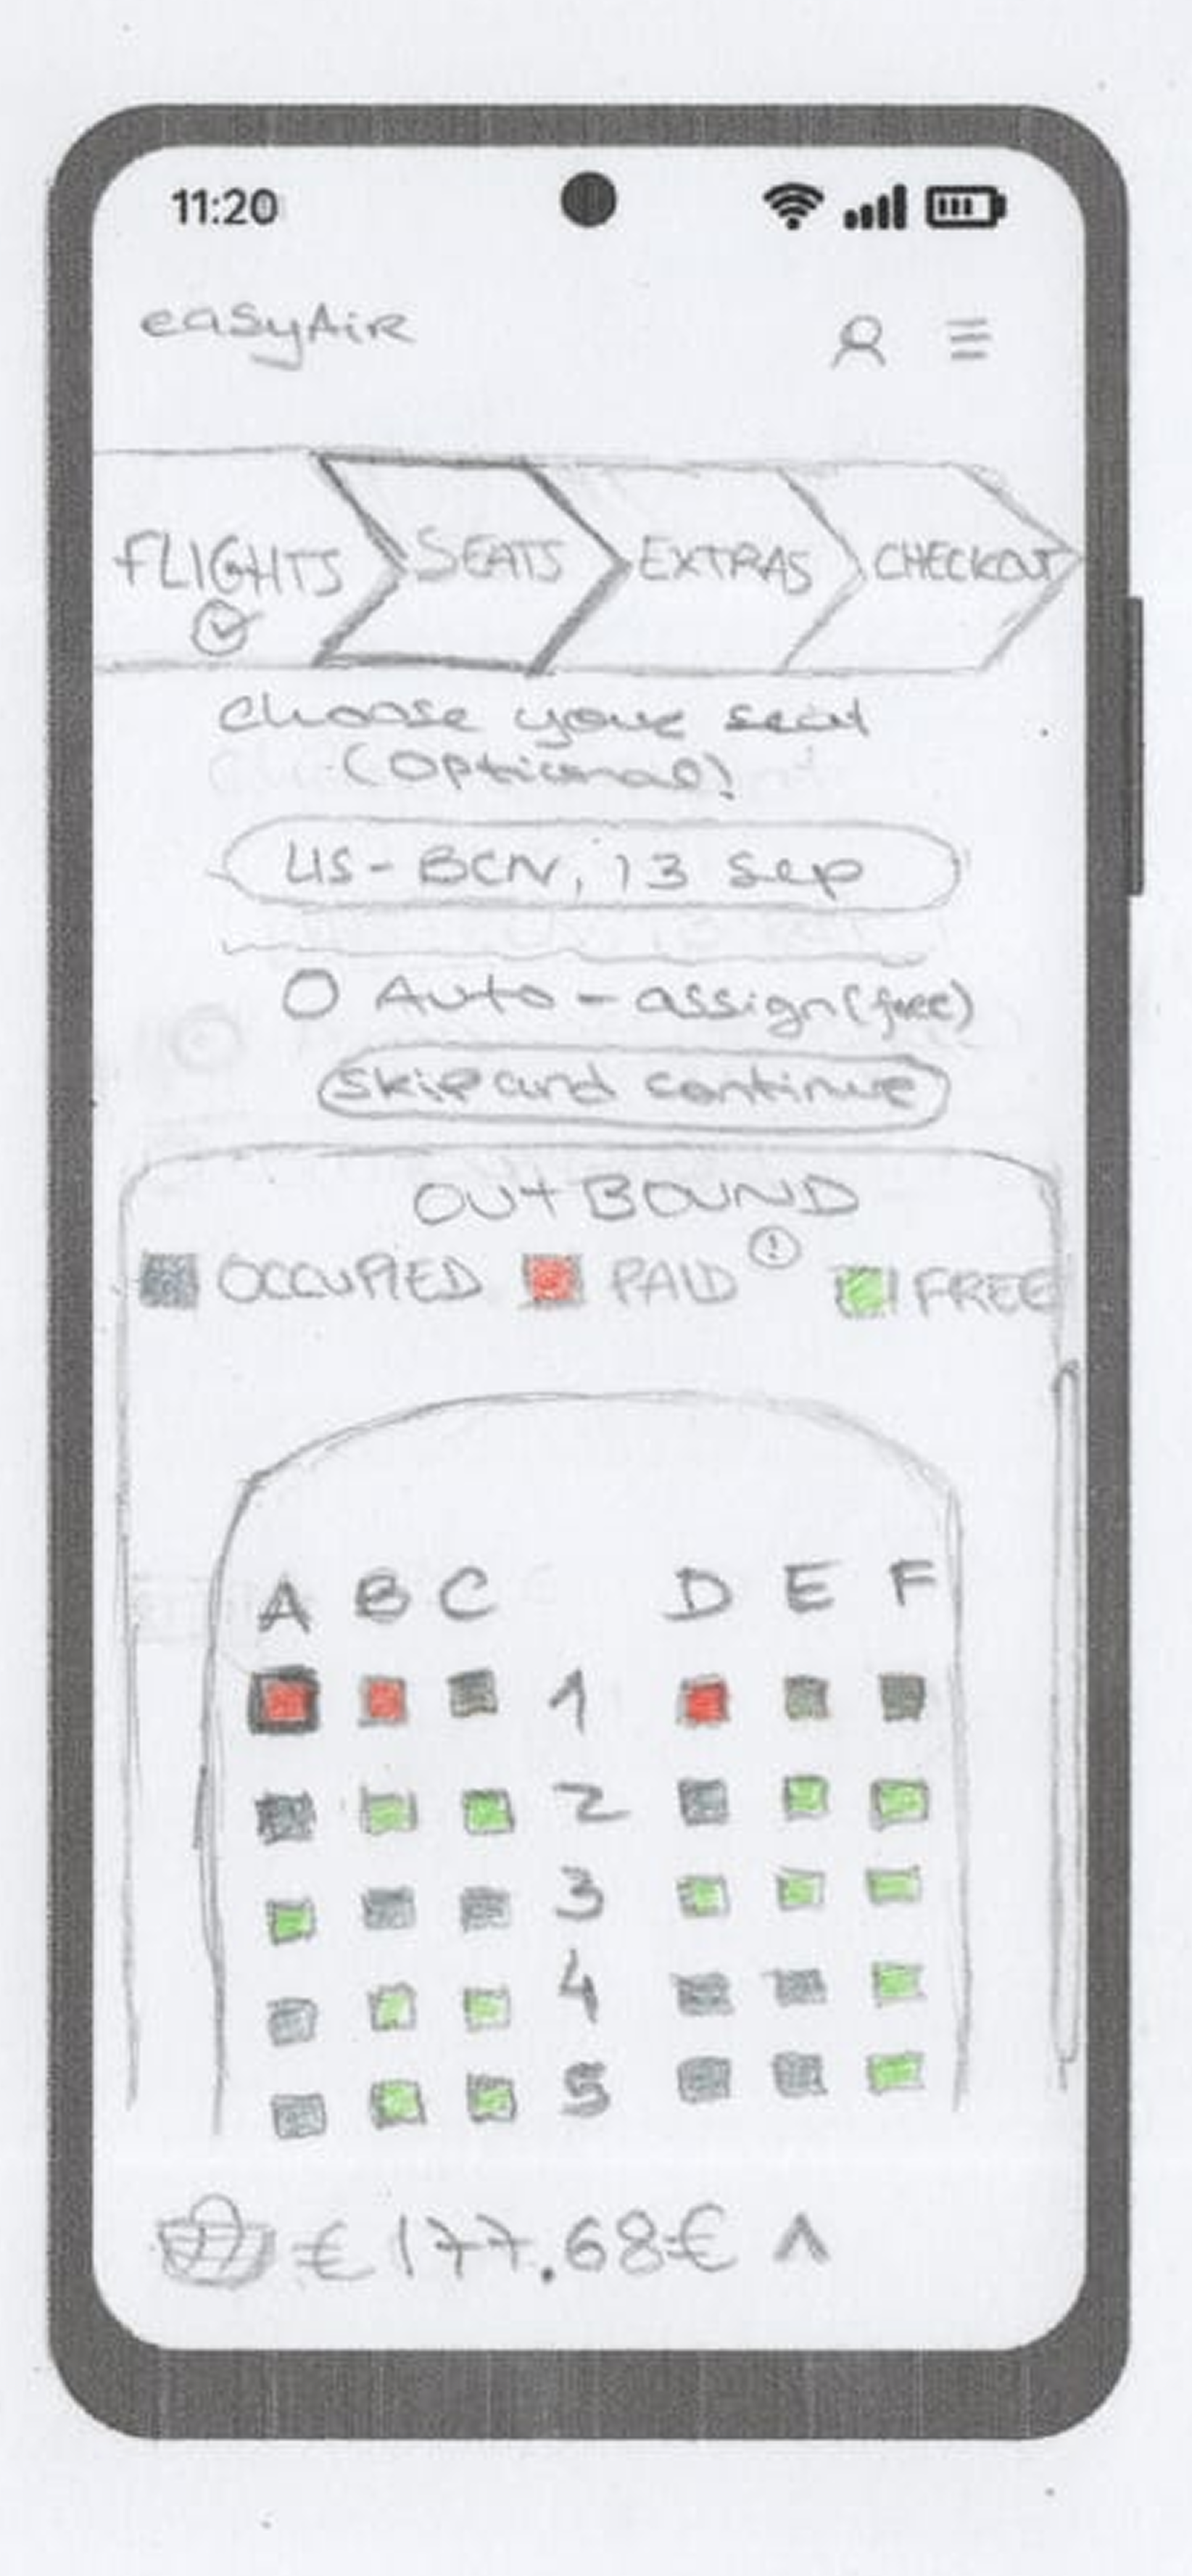 11:20
easyAir
FLIGHTS SEATS EXTRAS CHECKOUT
choose your seat
(optional)
LIS - BCN, 13 Sep
Auto - assign (free)
Skip and continue
OUTBOUND
OCCUPIED PAID ! FREE
A B C D E F
1
2
3
4
5
€ 177.68€ ^